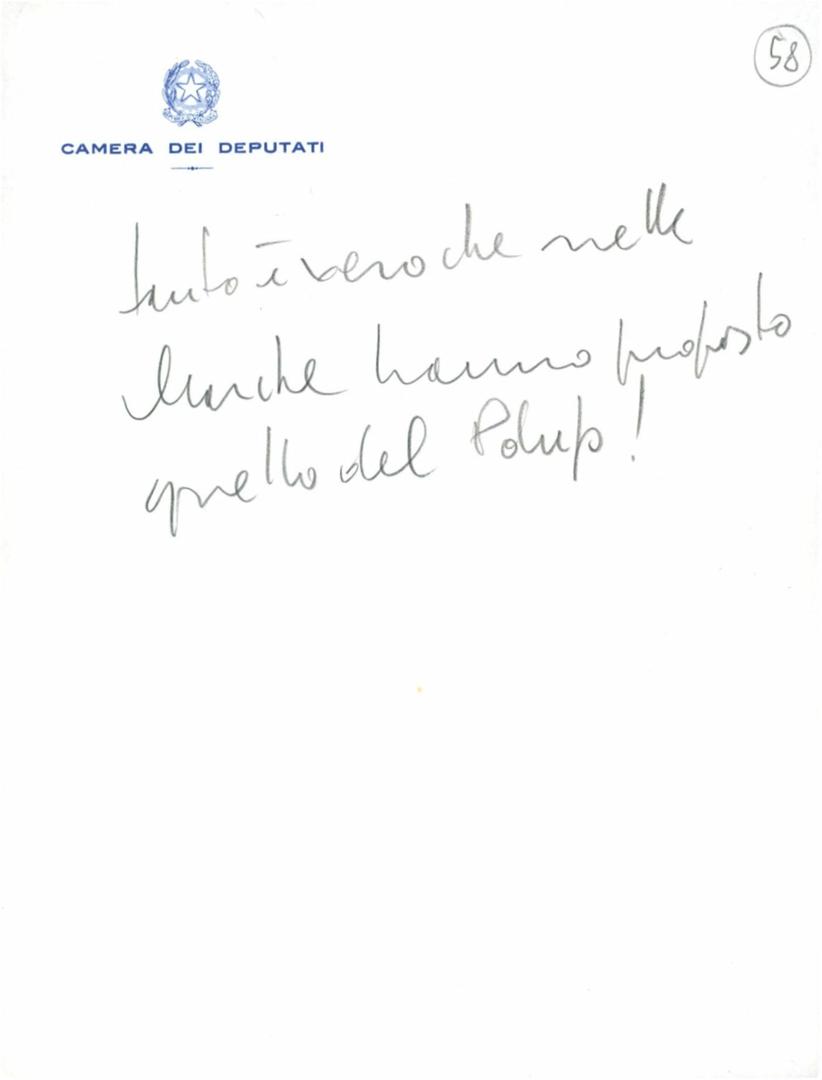 58
CAMERA DEI DEPUTATI
tanto è vero che nelle
Marche hanno proposto
quello del Pdup!